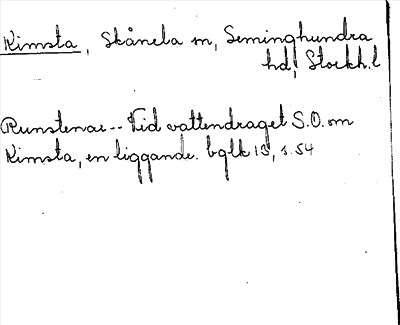 Kimsta, Skånela sn, Seminghundra
hd, Stockh.l
Runstenar -- Vid vattendraget S.O. om
Kimsta, en liggande. bglk 13, s. 54